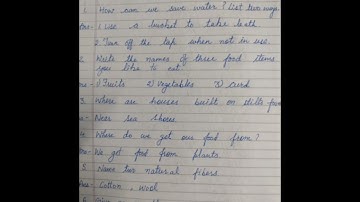 1. How can we save water? List two ways
Ans- 1 Use a bucket to take bath
2. Turn off the tap when not in use.
2. Write the names of three food items
you like to eat?
Ans- 1) Fruits 2) Vegetables 3) curd
3. Where are houses built on stilts found
Near sea shores.
4. Where do we get our food from?
Ans- We get food from plants.
5. Name two natural fibers
Ans- Cotton, wool
6